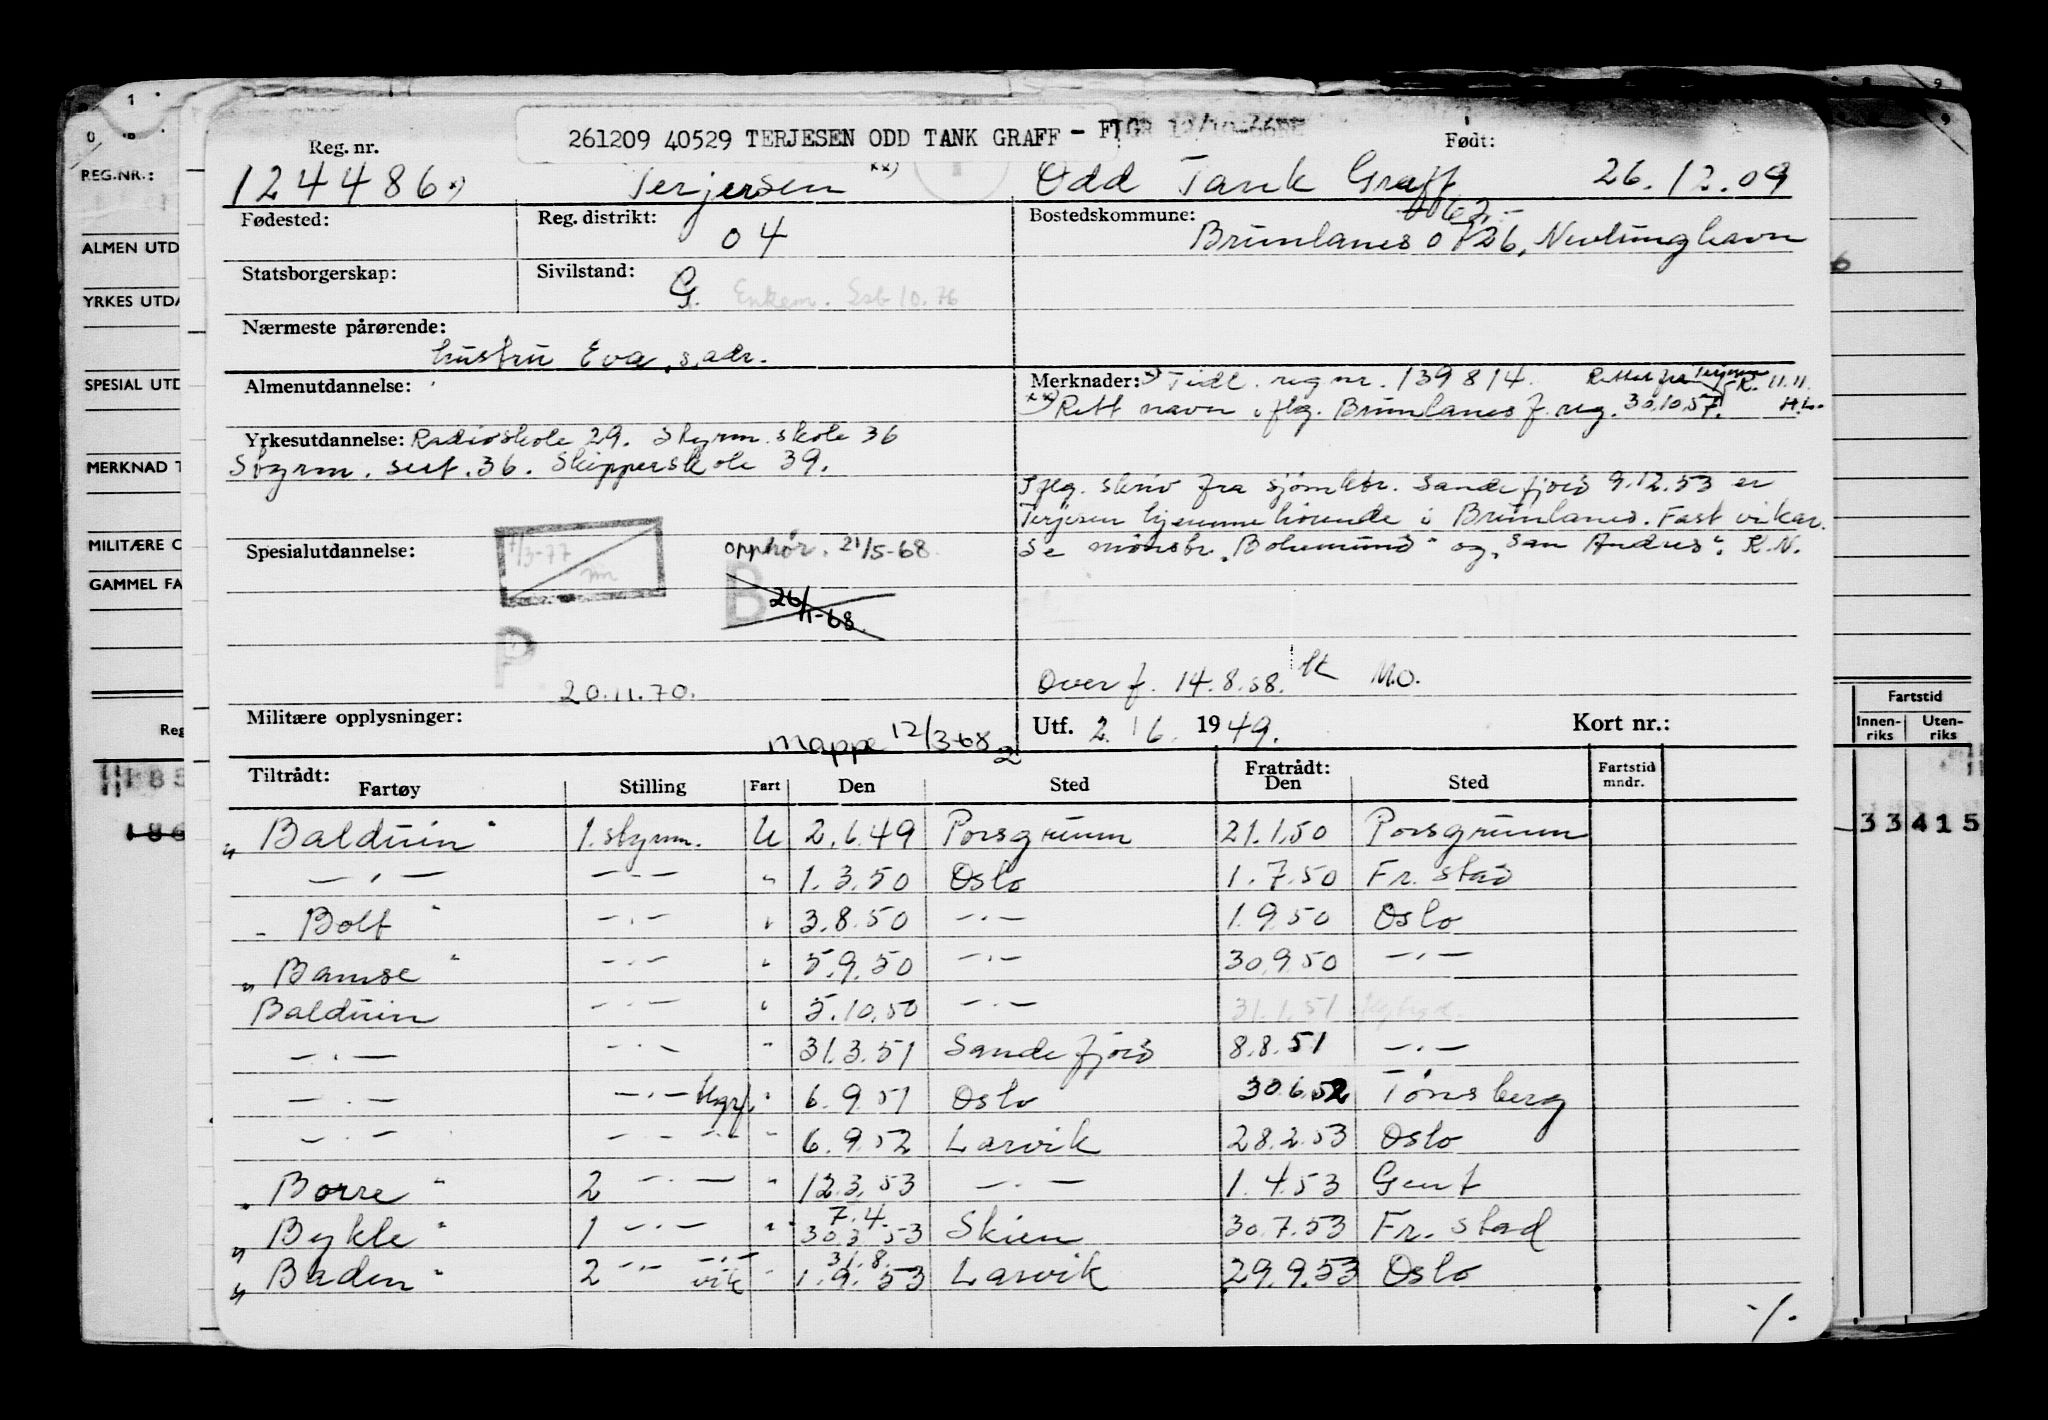 261209 40529 TERJESEN ODD TANK GRAFF -
Reg. nr. Født:
124486 x) Terjersen xx) Odd Tank Graff 26.12.09
Fødested: Reg. distrikt: 04 Bostedskommune: Brunlanes 0726, Nevlunghavn
Statsborgerskap: Sivilstand: G. Enkem. 10.76
Nærmeste pårørende:
hustru Eva, s.adr.
Almenutdannelse: Merknader: x) Tidl. reg nr. 139814. Rettet fra 11.11.
xx) Rett navn iflg. Brunlanes f. reg. 30.10.57. H.L.
Yrkesutdannelse: Radioskole 29. Styrm. skole 36
Styrm. sert. 36. Skipperskole 39.
Iflg. skriv fra sjømktr. Sandefjord 9.12.53 er
Terjesen hjemmehørende i Brunlanes. Fast vikar.
Se mønstr. "Bohemund" og "San Andres". K.N.
Spesialutdannelse: 7/3-77 opphør. 21/5-68.
B 26/11-68
P
20.11.70. Overf. 14.8.58. M.O.
Militære opplysninger: Mappe 12/3-68 Utf. 2 / 6 1949. Kort nr.:
Tiltrådt: Fratrådt:
Fartøy Stilling Fart Den Sted Den Sted Fartstid mndr.
"Balduin" 1. styrm. U 2.6.49 Porsgrunn 21.1.50 Porsgrunn
— " — — " — " 1.3.50 Oslo 1.7.50 Fr. stad
"Bolt" — " — " 3.8.50 — " — 1.9.50 Oslo
"Bamse" — " — " 5.9.50 — " — 30.9.50 — " —
Balduin — " — " 5.10.50 — " — 31.1.51
— " — — " — " 31.3.51 Sandefjord 8.8.51 — " —
— " — — " — " 6.9.51 Oslo 30.6.52 Tønsberg
— " — — " — " 6.9.52 Larvik 28.2.53 Oslo
"Borre" 2 — " — " 12.3.53 — " — 1.4.53 Gent
"Bykle" 1 — " — " 7.4. 30.3.53 Skien 30.7.53 Fr. stad
"Baden" 2 — " — vik " 31.8. 1.9.53 Larvik 29.9.53 Oslo
-/.
REG.NR.:
ALMEN UTD
YRKES UTDA
SPESIAL UTD
MERKNAD T
MILITÆRE O
GAMMEL FA
Reg
186
Fartstid
Innen-riks Uten-riks
33415